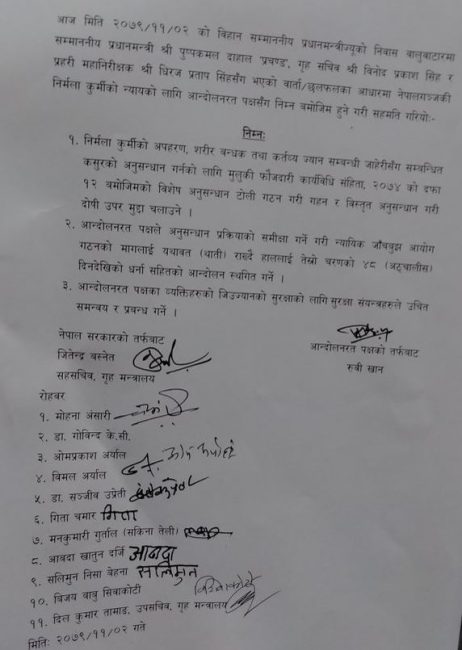 आज मिति २०७९/११/०२ को विहान सम्माननीय प्रधानमन्त्रीज्यूको निवास वालुवाटारमा
सम्माननीय प्रधानमन्त्री श्री पुष्पकमल दाहाल 'प्रचण्ड', गृह सचिव श्री विनोद प्रकाश सिंह र
प्रहरी महानिरीक्षक श्री धिरज प्रताप सिंहसँग भएको वार्ता/छलफलका आधारमा नेपालगञ्जकी
निर्मला कुर्मीको न्यायको लागि आन्दोलनरत पक्षसँग निम्न बमोजिम हुने गरी सहमति गरियोः-
निम्नः
१. निर्मला कुर्मीको अपहरण, शरीर बन्धक तथा कर्तव्य ज्यान सम्बन्धी जाहेरीसँग सम्बन्धित
कसुरको अनुसन्धान गर्नको लागि मुलुकी फौजदारी कार्यविधि संहिता, २०७४ को दफा
१२ बमोजिमको विशेष अनुसन्धान टोली गठन गरी गहन र विस्तृत अनुसन्धान गरी
दोषी उपर मुद्दा चलाउने ।
२. आन्दोलनरत पक्षले अनुसन्धान प्रक्रियाको समीक्षा गर्ने गरी न्यायिक जाँचबुझ आयोग
गठनको मागलाई यथावत (थाती) राख्दै हाललाई तेस्रो चरणको ४८ (अठ्चालीस)
दिनदेखिको धर्ना सहितको आन्दोलन स्थगित गर्ने ।
३. आन्दोलनरत पक्षका व्यक्तिहरुको जिउज्यानको सुरक्षाको लागि सुरक्षा संयन्त्रहरुले उचित
समन्वय र प्रबन्ध गर्ने ।
नेपाल सरकारको तर्फवाट
जितेन्द्र बस्नेत
सहसचिव, गृह मन्त्रालय
आन्दोलनरत पक्षको तर्फवाट
रुवी खान
रोहवर
१. मोहना अंसारी
२. डा. गोविन्द के.सी.
३. ओमप्रकाश अर्याल
४. विमल अर्याल
५. डा. सञ्जीव उप्रेती
६. गिता चमार गिता
७. मनकुमारी गुर्ताल (सकिना तेली)
८. आवदा खातुन दर्जि आवदा
९. सलिमुन निसा बेहना सलिमुन
१०. विजय वावु सिवाकोटी
११. दिल कुमार तामाङ, उपसचिव, गृह मन्त्रालय
मितिः २०७९/११/०२ गते